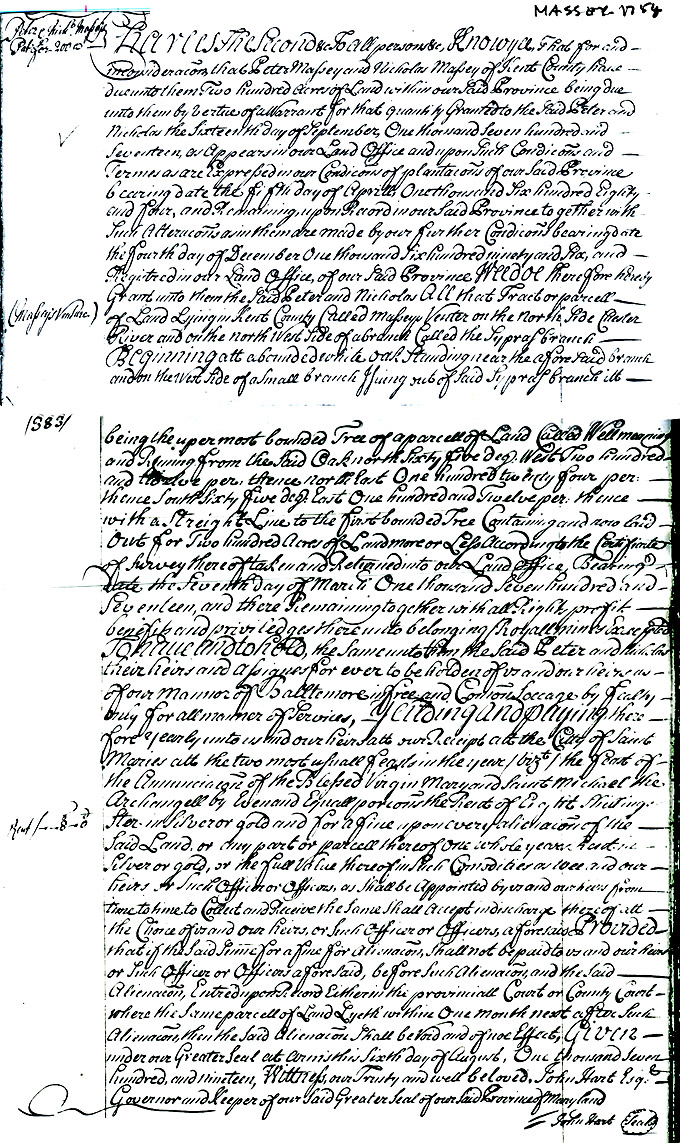 MASSEY 1754
Peter & Nichs. Massey
Pat. for 200 a
Charles The Second &c To all persons &c, Know ye That for and
in consideracon, that Peter Massey and Nicholas Massey of Kent County have
due unto them Two hundred Acres of Land within our Said Province being due
unto them by Vertue of a Warrant for that quantity Granted to the Said Peter and
Nicholas the Sixteenth day of September, One thousand Seven hundred and
Seventeen, as Appears in our Land Office and upon Such Condicons and
Termes as are Expressed in our Condicons of plantacons of our Said Province
bearing date the fifth day of Aprill One thousand Six hundred Eighty
and four, and Remaining upon Record in our Said Province together with
Such Alteracons as in them are made by our further Condicons bearing date
the fourth day of December One thousand Six hundred ninety and Six, and
Registred in our Land Office, of our Said Province, Wee doe therefore hereby
Grant unto them the Said Peter and Nicholas All that Tract or parcell
(Massey's Venture)
of Land Lying in Kent County Called Masseys Venter on the north Side Chester
River and on the north West Side of a branch Called the Sypras branch
Beginning att a bounded white Oak Standing near the aforesaid branch
and on the West Side of a Small branch Issuing out of Said Sypras branch itt
1383/
being the upermost bounded Tree of a parcell of Land Called Wellmeaning
and Runing from the Said Oak north Sixty five deg: West Two hundred
and twelve per: thence north East One hundred twenty four per:
thence South Sixty five deg: East One hundred and Twelve per: thence
with a Streight Line to the first bounded Tree Containing and now laid
Out for Two hundred Acres of Land more or Less According to the Certificate
of Survey thereof taken and Returned into our Land Office, Bearing
date the Seventh day of March One thousand Seven hundred and
Seventeen, and there Remaining together with all Right profit
benefits and priviledges thereunto belonging Royall mines Excepted
To have and to hold, the Same unto them the Said Peter and Nicholas
their heirs and assignes for ever to be holden of us and our heirs as
of our Mannor of Balltemore in free and Comon Soccage by fealty
only for all manner of Services, Yeilding and paying there
fore yearly unto us and our heirs att our Receipt att the City of Saint
Maries att the two most usuall feasts in the year (vizt) the feast of
the Annunciacon of the Blessed Virgin Mary and Saint Michael the
Archangell by Even and Equall porcons the Rent of Eight Shillings
Rent £ - 8 - 0
Ster: in Silver or gold and for a fine upon every alienacon of the
Said Land, or any part or parcell thereof One whole years Rent in
Silver or gold, or the full Value thereof in Such Comodities as wee and our
heirs or Such Officer or Officers, as Shall be Appointed by us and our heirs from
time to time to Collect and Receive the Same Shall Accept in discharge thereof att
the Choice of us and our heirs, or Such Officer or Officers, aforesaid Provided
that if the Said Summe for a fine for Alienacon, Shall not be paid to us and our heirs
or Such Officer or Officers aforesaid, before Such Alienacon, and the Said
Alienacon, Entred upon Record Either in the provinciall Court or County Court
where the Same parcell of Land Lyeth within One month next after Such
Alienacon, then the Said Alienacon Shall be Void and of noe Effect, Given
under our Greater Seal at Armes this Sixth day of August, One thousand Seven
hundred, and nineteen, Wittness, our Trusty and well beloved, John Hart Esqr.
Governor and Keeper of our Said Greater Seal of our Said Province of Maryland
John Hart (Seal)